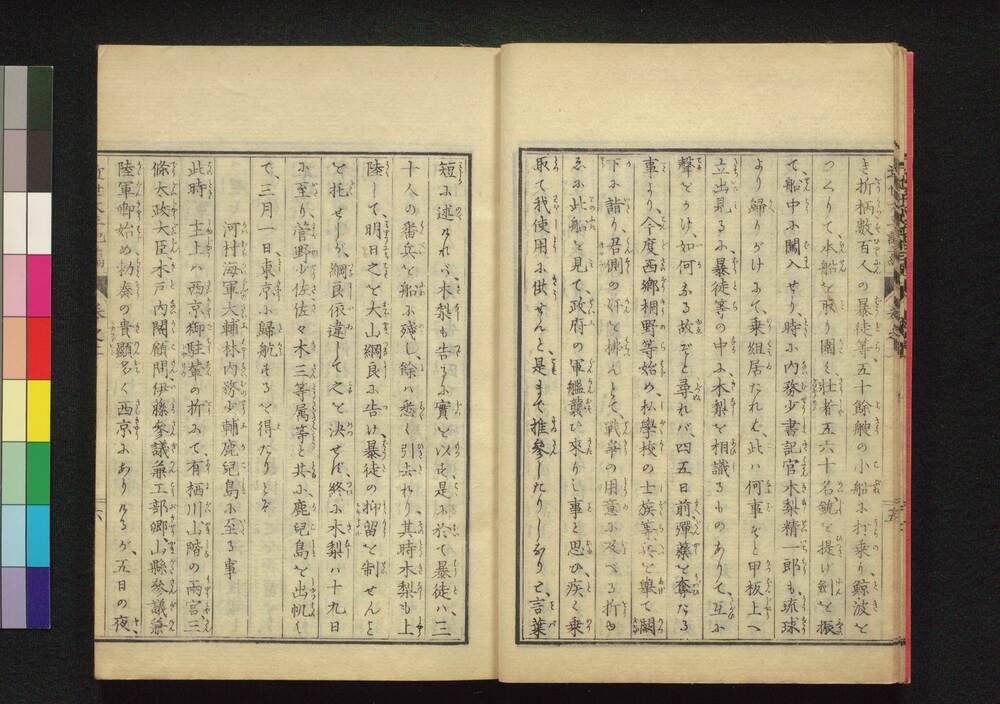 き折柄數百人の暴徒等五十餘艘の小船に打乗り鯨波を
つくりて本船を取り圍ミ壮者五六十名銃を提げ剣を振
て船中に闖入せり、時に内務少書記官木梨精一郎も琉球
より歸りがけにて乗組居たれバ、此ハ何事ぞと甲板上へ
立出見るに暴徒等の中に木梨を相識るものありて互に
聲をかけ、如何なる故ぞと尋れバ、四五日前彈藥を奪たる
事より、今度西郷桐野等始め私學校の士族等兵を擧て闕
下に詣り君側の奸を掃んとて、戰爭の用意に及べる折か
ゑに此船を見て政府の軍艦襲ひ來りし事と思ひ疾く乗
取て我使用に供せんと、是まで推參したりしなりと、言葉
短に述けれバ、木梨も告るに實を以せ是に於て暴徒ハ、三
十人の番兵を船に殘し、餘ハ悉く引去れり、其時木梨も上
陸して、明日之を大山綱良に告け、暴徒の抑留を制せんと
を托せしが、綱良依違して之を決せず、終に木梨ハ十九日
に至り、菅野少佐々木三等属等と共に鹿兒島を出帆し
て、三月一日東京に歸航するを得たりとぞ
河村海軍大輔林内務少輔鹿兒島に至る事
此時 主上ハ西京御駐輦の折にて、有栖川山階の兩宮三
條太政大臣木戸内閣顧問伊藤參議兼工部卿、山縣參議兼
陸軍卿始め勅奏の貴顯多く西京にありけるが、五日の夜、